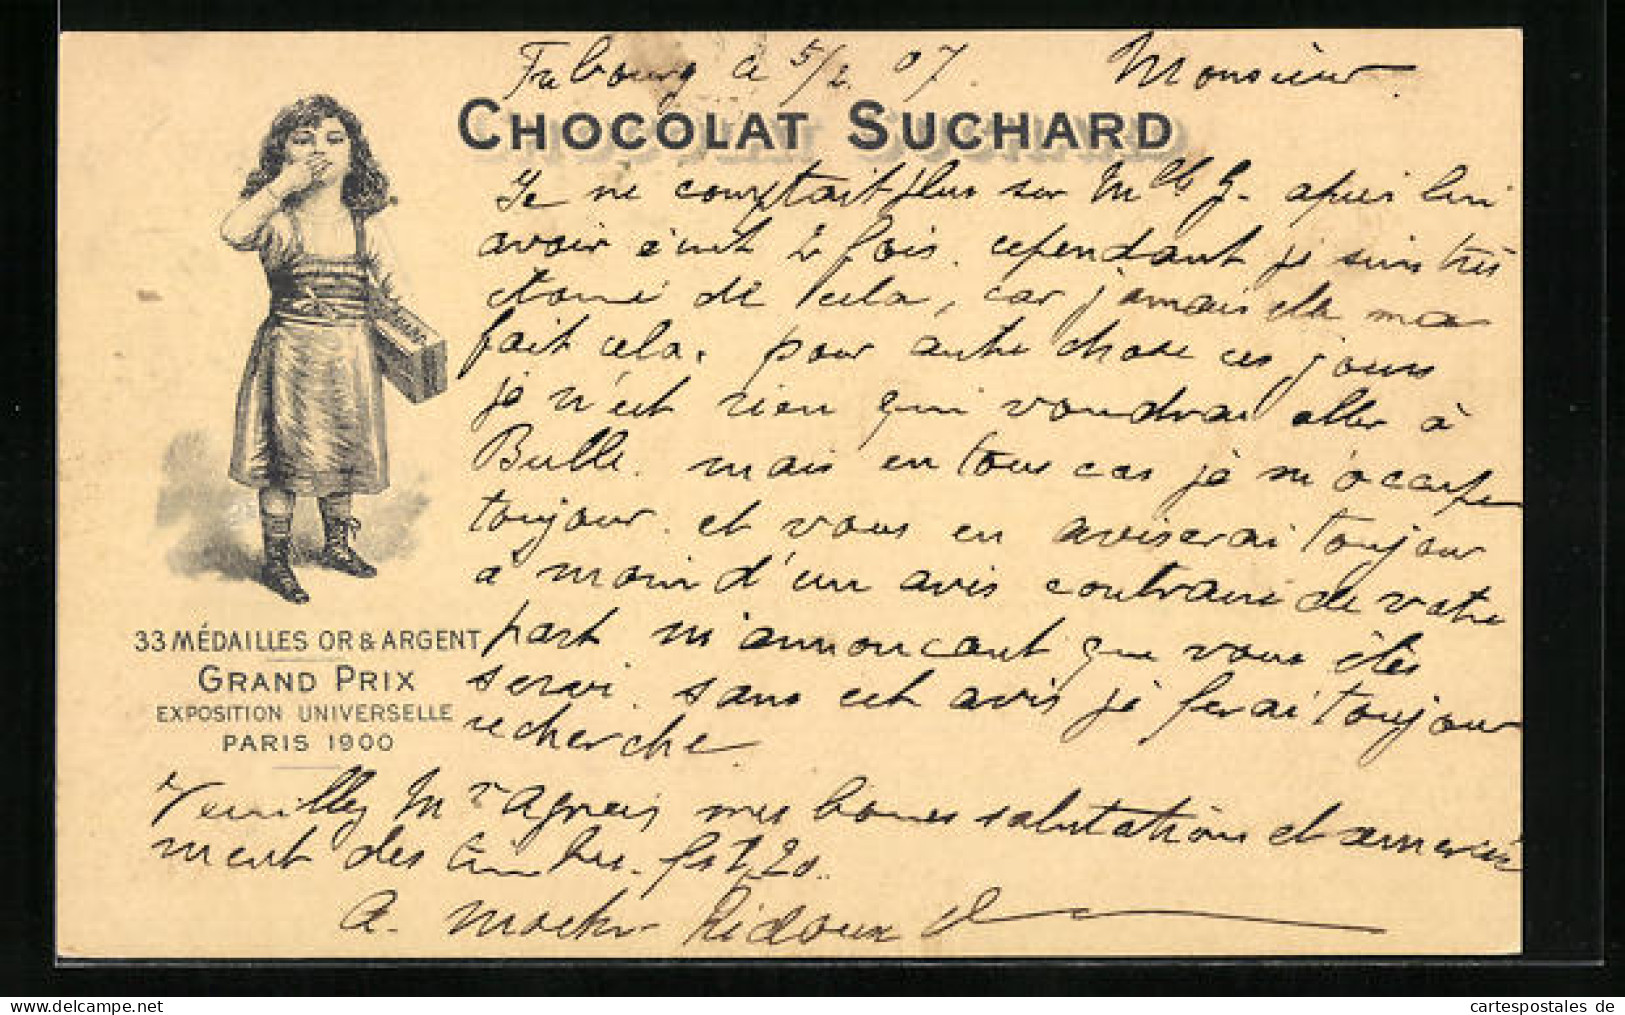 Fribourg a 5/2 07. Monsieur.
CHOCOLAT SUCHARD
Je ne comptait plus sur Mlle G. apres lui
avoir écrit 2 fois. cependant je suis très
étonné de cela, car jamais elle ma
fait cela. pour autre chose ces jours
je n'est rien qui voudrai aller à
Bulle. mais en tous cas je m'occupe
toujour. et vous en aviserai toujour
a moin d'un avis contraire de votre
part m'annoncant que vous êtes
servi. sans cet avis je ferai toujour
recherche.
33 MÉDAILLES OR & ARGENT
GRAND PRIX
EXPOSITION UNIVERSELLE
PARIS 1900
Veuillez Mr Agreis mes bonnes salutations et
ment des timbre. frs 1,20.
A. Ridoux
cartespostales de